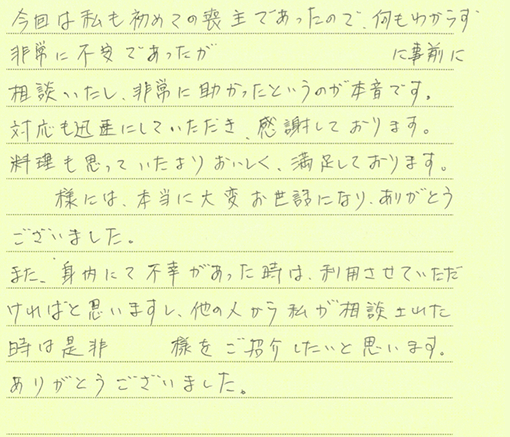 今回は私も初めての喪主であったので、何もわからず
非常に不安であったが に事前に
相談いたし、非常に助かったというのが本音です。
対応も迅速にしていただき、感謝しております。
料理も思っていたよりおいしく、満足しております。
様には、本当に大変お世話になり、ありがとう
ございました。
また、身内にて不幸があった時は、利用させていただ
ければと思いますし、他の人から私が相談された
時は是非 様をご紹介したいと思います。
ありがとうございました。